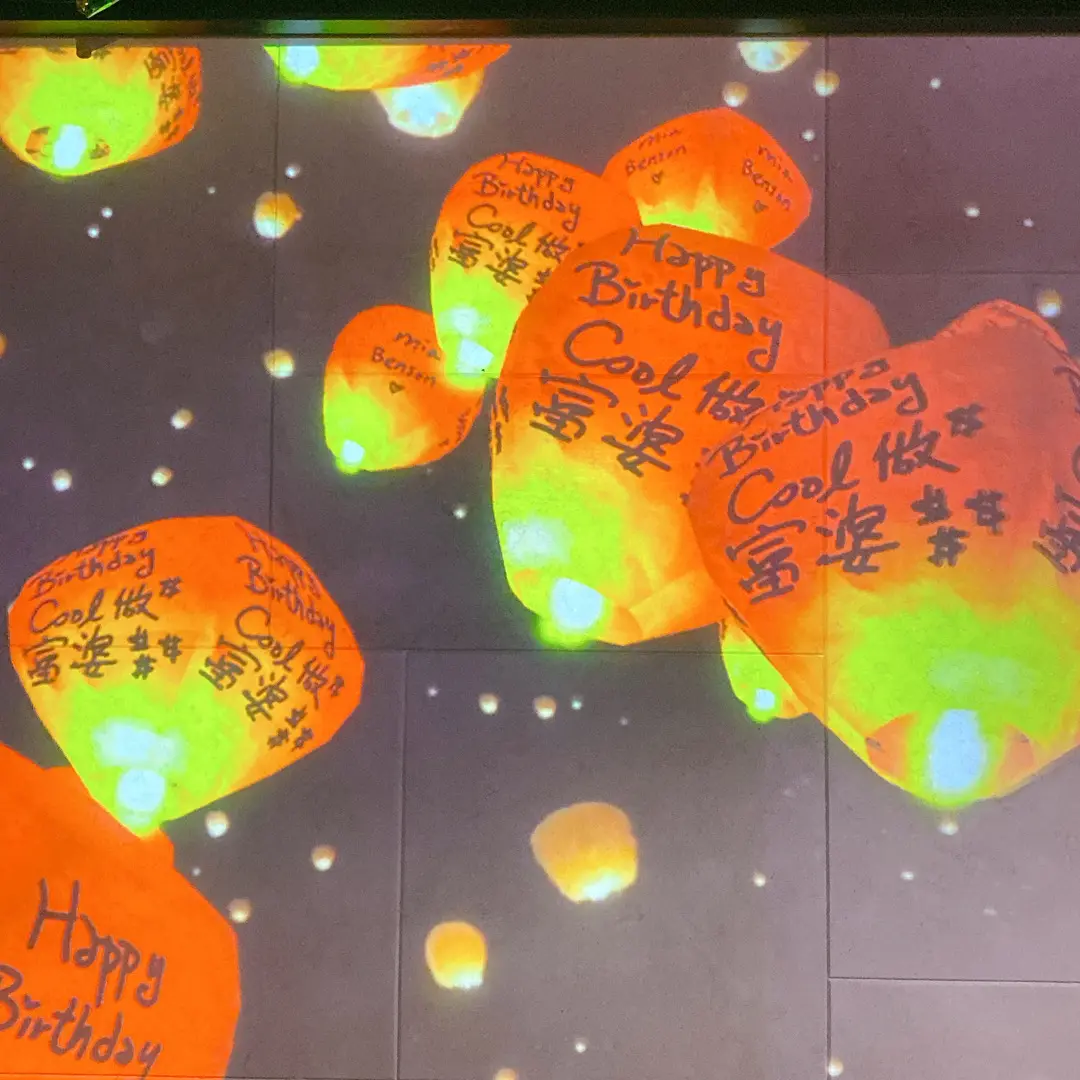 mia
Benson ♡
mia
Benson ♡
Happy
Birthday
Cool 做
富婆
mia
Benson ♡
Happy
Birthday
Cool 做
富婆
Happy
Birthday
Cool 做#
富婆###
Happy
Birthday
Cool 做#
富婆###
Happy
Birthday
Cool 做#
富婆###
Happy
Birthday